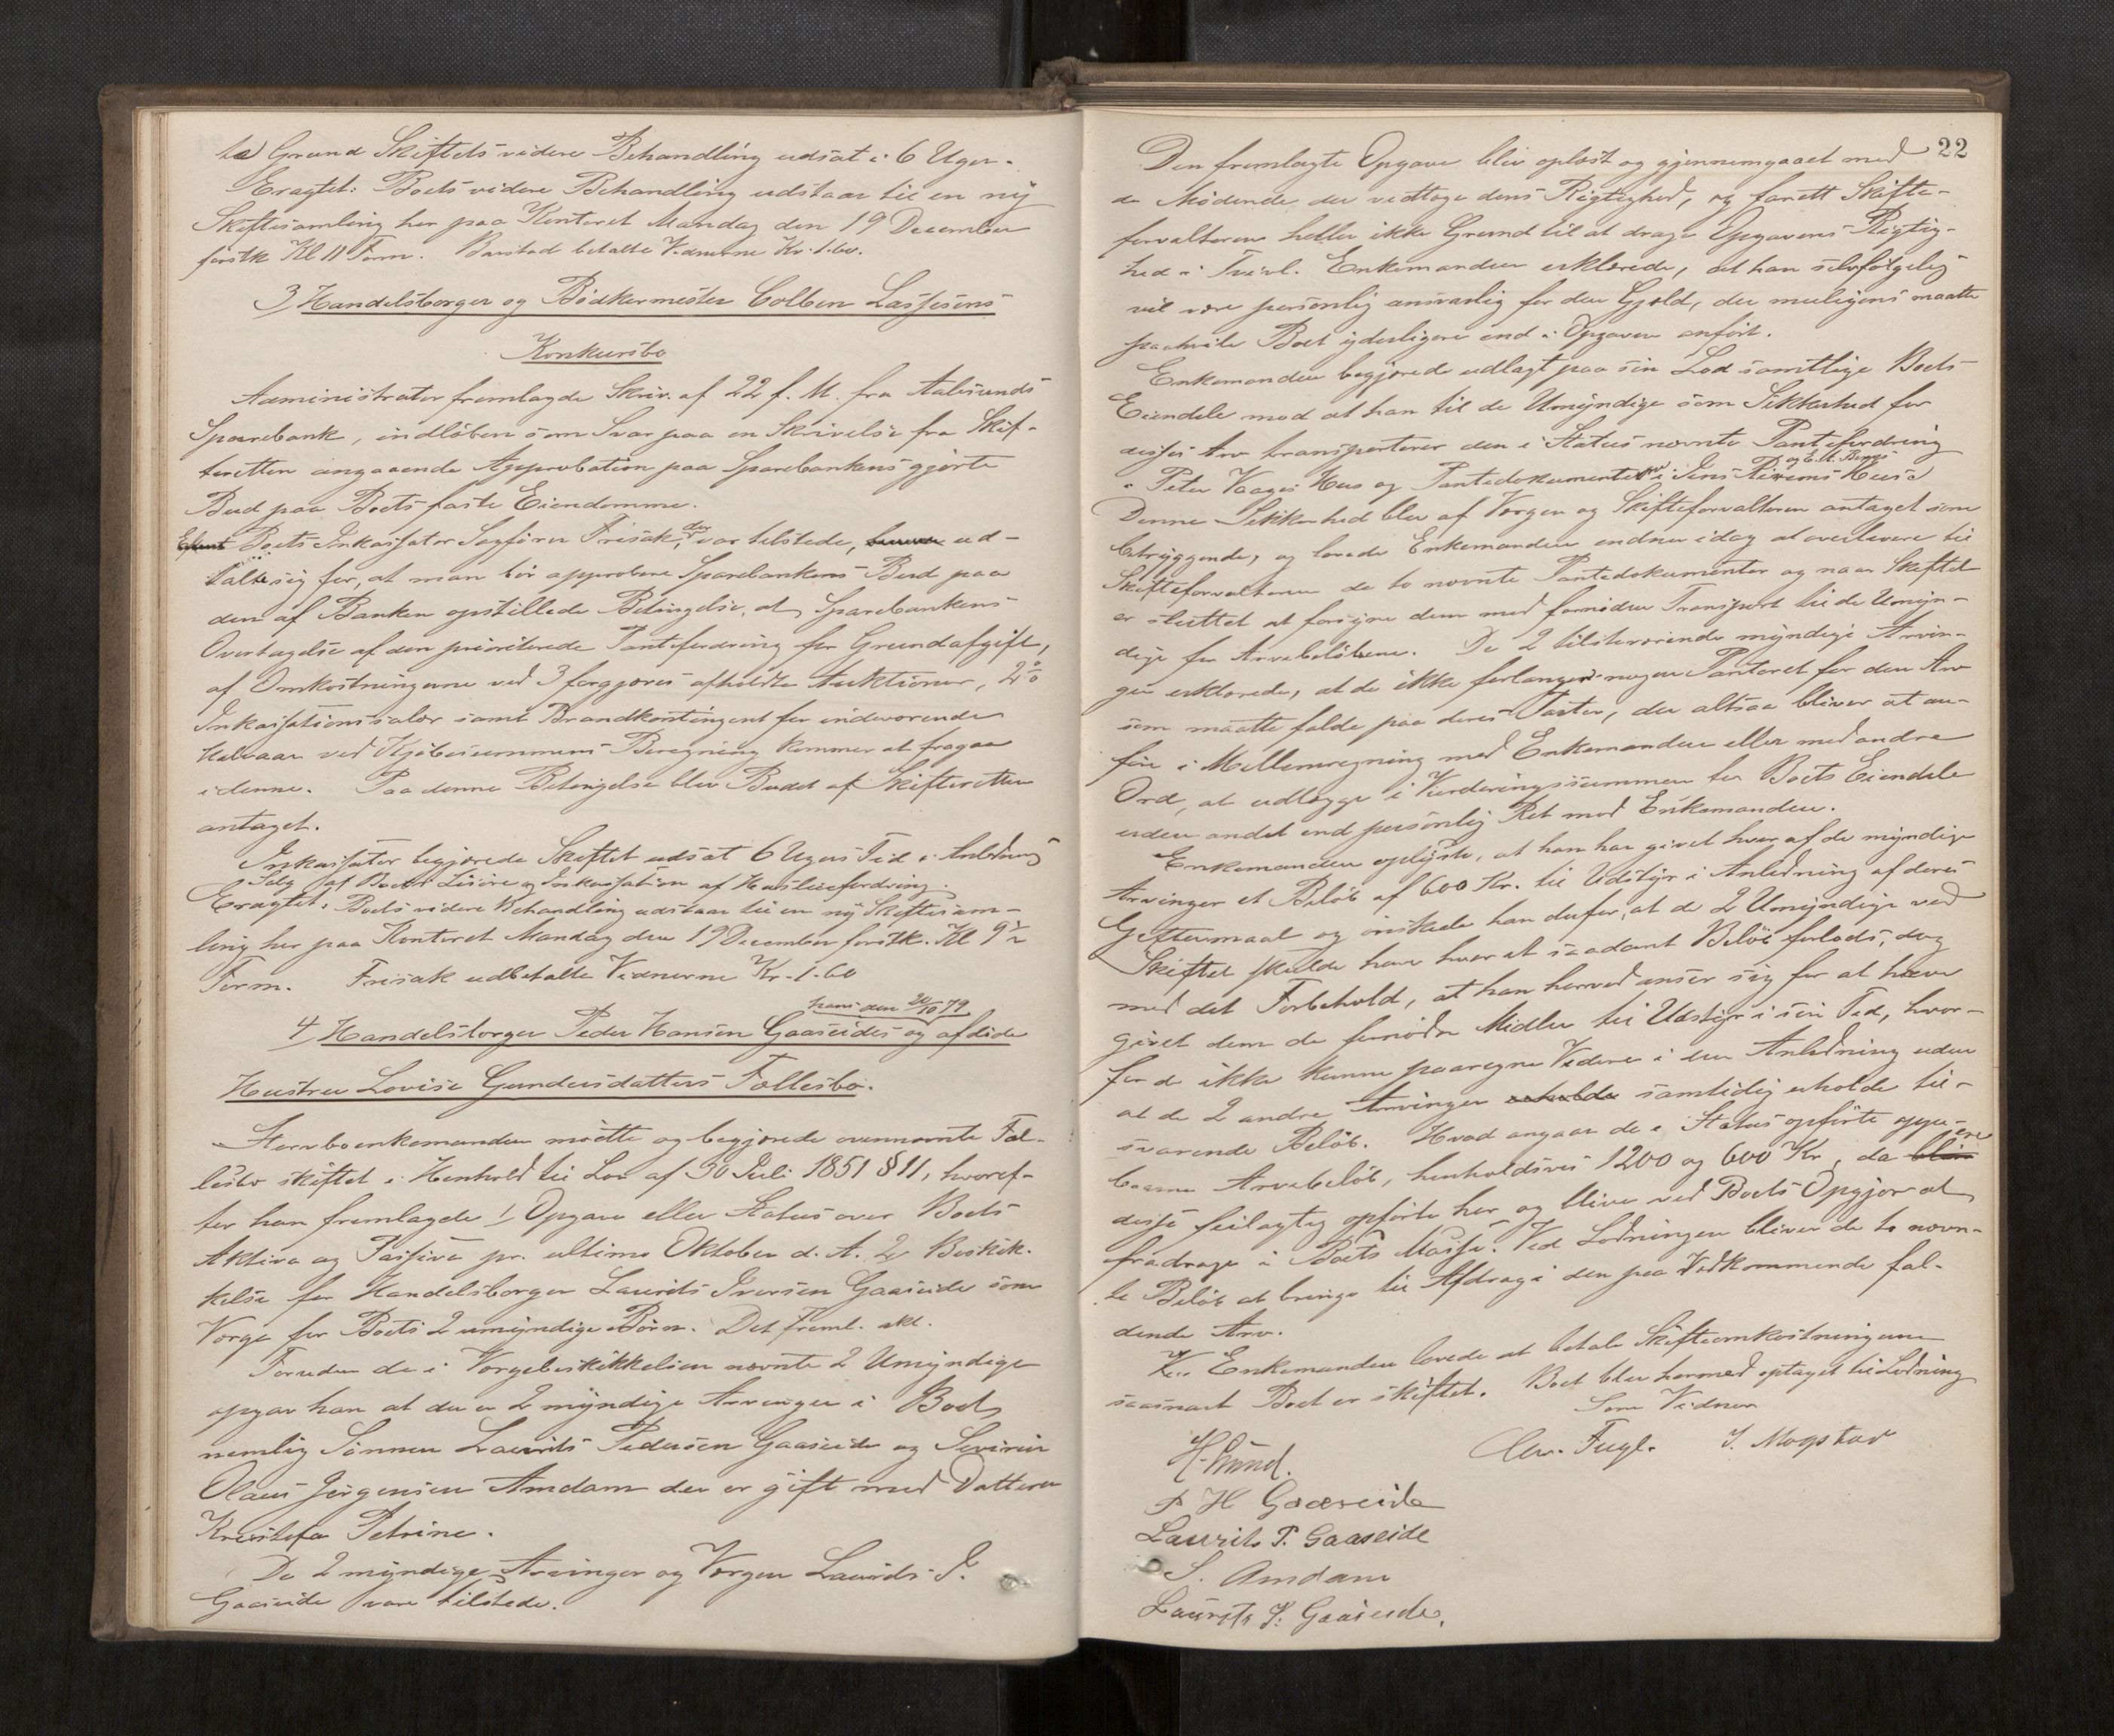 ta Grund Skiftets videre Behandling udsat i 6 Uger.
Eragtet: Boets videre Behandling udstaar til en ny
Skiftesamling her paa Kontoret Mandag den 19 December
førstk Kl 11 Form. Barstad betalte Vidnerne Kr. 1.60.
3/ Handelsborger og Bødkermester Colben Lassesens
Konkursbo
Administrator fremlagde Skriv. af 22 f. M. fra Aalesunds
Sparebank, indløben som Svar paa en Skrivelse fra Skif-
teretten angaaende Approbation paa Sparebankens gjorte
Bud paa Boets faste Eiendomme.
Boets Inkassator Sagfører Frisak, der var tilstede, ud-
talte sig for, at man bør approbere Sparebankens Bud paa
den af Banken opstillede Betingelse, at Sparebankens
Overtagelse af den prioriterede Pantefordring for Grundafgift,
af Omkostningerne ved 3 forgjæves afholdte Auktioner, 2%
Inkassationssalær samt Brandkontingent for indeværende
Halvaar ved Kjøbesummens Beregning kommer at fragaa
i denne. Paa denne Betingelse blev Budet af Skifteretten
antaget.
Inkassator begjærede Skiftet udsat 6 Ugers Tid i Anledning
Salg af Boets Løsøre og Inkassation af Huslejefordring.
Eragtet: Boets videre Behandling udstaar til en ny Skiftesam-
ling her paa Kontoret Mandag den 19 December førstk. Kl 9½
Form. Frisak udbetalte Vidnerne Kr. 1.60
hans den 20/10 79
4/ Handelsborger Peder Hansen Gaaseides og afdøde
Hustru Lovise Gundersdatters Fællesbo.
Stervboenkemanden mødte og begjærede ovennævnte Fæl-
lesbo skiftet i Henhold til Lov af 30 Juli 1851 § 11, hvoref-
ter han fremlagde 1/ Opgave eller Status over Boets
Aktiva og Passiva pr. ultimo Oktober d. A. 2/ Beskik-
kelse for Handelsborger Laurits Iversen Gaaseide som
Værge for Boets 2 umyndige Børn. Det freml. akt.
Foruden de i Værgebeskikkelsen nævnte 2 Umyndige
opgav han at der er 2 myndige Arvinger i Boet,
nemlig Sønnen Laurits Pedersen Gaaseide og Severin
Olaus Jørgensen Amdam der er gift med Datteren
Kristofa Petrine.
De 2 myndige Arvinger og Værgen Laurits I.
Gaaseide vare tilstede.
22
Den fremlagte Opgave blev oplæst og gjennemgaaet med
de Mødende der vedtoge dens Rigtighed, og fandt Skifte-
forvalteren heller ikke Grund til at drage Opgavens Rigtig-
hed i Tvivl. Enkemanden erklærede, at han selvfølgelig
vil være personlig ansvarlig for den Gjæld, der muligens maatte
paahvile Boet yderligere end i Opgaven anført.
Enkemanden begjærede udlagt paa sin Lod samtlige Boets
Eiendele mod at han til de Umyndige som Sikkerhed for
disses Arv transporterer den i Status nævnte Pantefordring
og E. A. Bergs
i Peter Vaages Hus og Pantedokumentet i Jens Huse
Denne Sikkerhed blev af Værgen og Skifteforvalteren antaget som
betryggende, og lovede Enkemanden endnu idag at overlevere til
Skifteforvalteren de to nævnte Pantedokumenter og naar Skiftet
er sluttet at forsyne dem med fornøden Transport til de Umyn-
dige for Arvebeløbene. De 2 tilstedeværende myndige Arvin-
ger erklærede, at de ikke forlanger nogen Panteret for den Arv
som maatte falde paa deres Parter, der altsaa bliver at an-
føre i Mellemregning med Enkemanden eller med andre
Ord, at udlægge i Vurderingssummen for Boets Eiendele
uden andet end personlig Ret mod Enkemanden.
Enkemanden oplyste, at han har givet hver af de myndige
Arvinger et Beløb af 600 Kr. til Udstyr i Anledning af deres
Giftermaal og ønskede han derfor, at de 2 Umyndige ved
Skiftet skulde have hver et saadant Beløb forlods, dog
med det Forbehold, at han herved anser sig for at have
givet dem de fornødne Midler til Udstyr i sin Tid, hvor-
for de ikke kunne paaregne Videre i den Anledning uden
at de 2 andre Arvinger erholde samtidig erholde til-
svarende Beløb. Hvad angaar de i Status opførte oppe-
baarne Arvebeløb, henholdsvis 1200 og 600 Kr, da ere
disse feilagtig opførte her og blive ved Boets Opgjør at
fradrage i Boets Masse. Ved Lodningen bliver de to nævn-
te Beløb at bringe til Afdrag i den paa Vedkommende fal-
dende Arv.
Enkemanden lovede at betale Skifteomkostningerne
saasnart Boet er skiftet. Boet blev hermed optaget til Lodning
Som Vidner
Chr. Fugl. J. Mogstad
P H Gaaseide
Laurits P. Gaaseide
S. Amdam
Laurits I. Gaaseide.